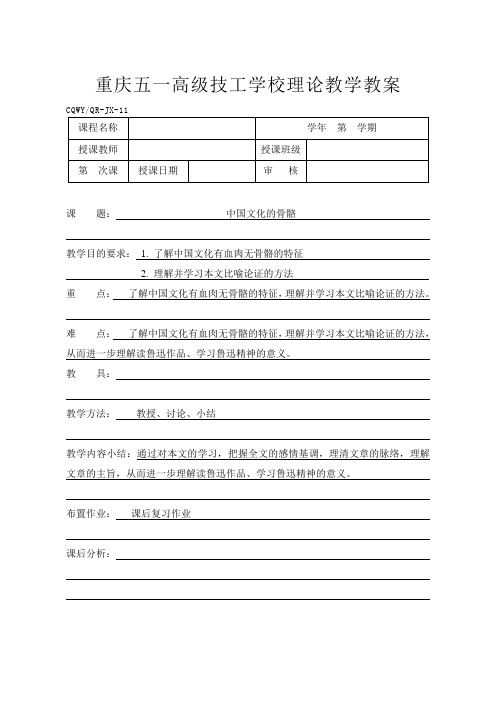 重庆五一高级技工学校理论教学教案
CQWY/QR-JX-11
课程名称 学年 第 学期
授课教师 授课班级
第 次课 授课日期 审 核
课 题： 中国文化的骨骼
教学目的要求： 1. 了解中国文化有血肉无骨骼的特征
2. 理解并学习本文比喻论证的方法
重 点： 了解中国文化有血肉无骨骼的特征，理解并学习本文比喻论证的方法。
难 点： 了解中国文化有血肉无骨骼的特征，理解并学习本文比喻论证的方法，
从而进一步理解读鲁迅作品、学习鲁迅精神的意义。
教 具：
教学方法： 教授、讨论、小结
教学内容小结：通过对本文的学习，把握全文的感情基调，理清文章的脉络，理解
文章的主旨，从而进一步理解读鲁迅作品、学习鲁迅精神的意义。
布置作业： 课后复习作业
课后分析：